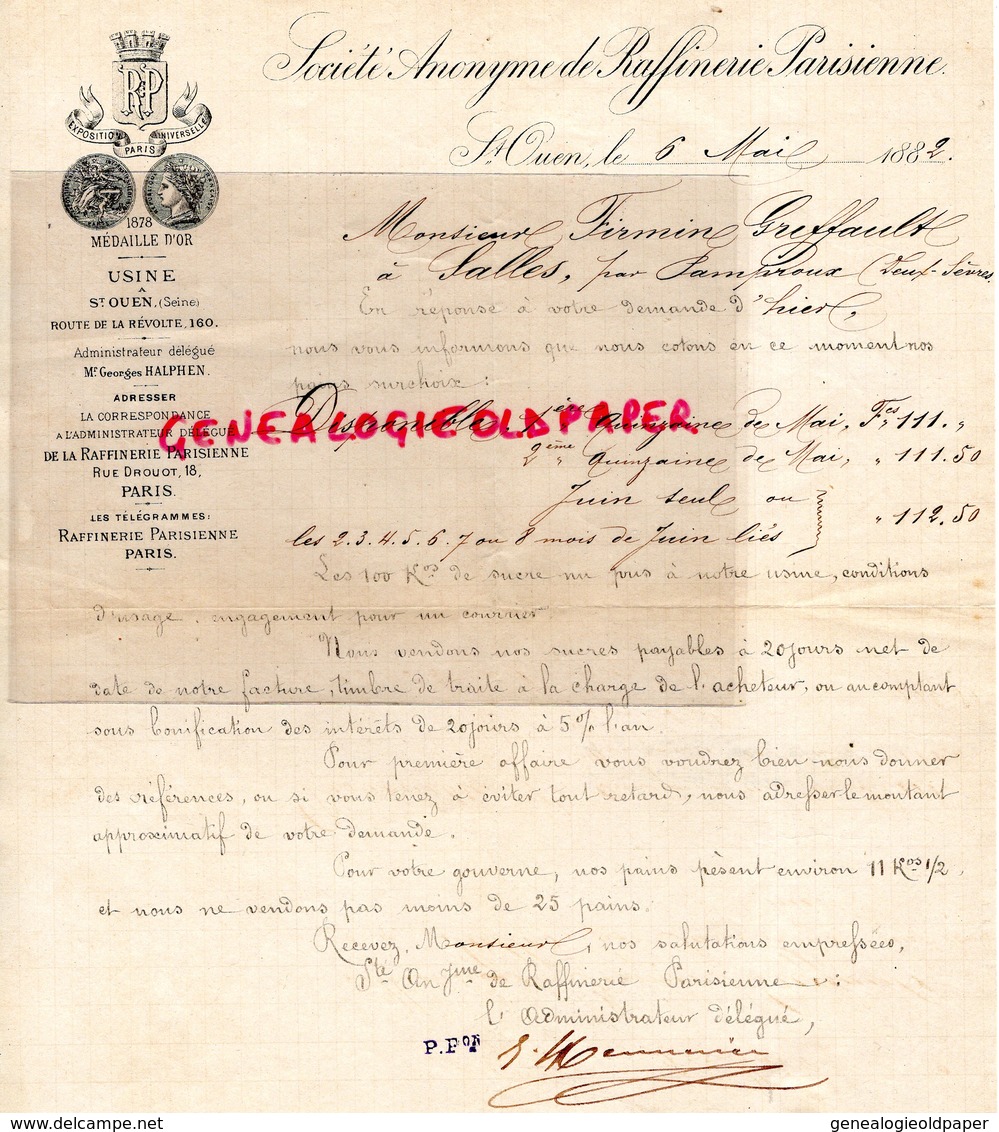 Société Anonyme de Raffinerie Parisienne.
R&P
EXPOSITION UNIVERSELLE
PARIS
St Ouen, le 6 Mai 1882.
1878
MÉDAILLE D'OR
USINE
À
ST OUEN, (Seine)
ROUTE DE LA RÉVOLTE, 160.
Administrateur délégué
Mr. Georges HALPHEN.
ADRESSER
LA CORRESPONDANCE
A L'ADMINISTRATEUR DÉLÉGUÉ
DE LA RAFFINERIE PARISIENNE
RUE DROUOT, 18,
PARIS.
LES TÉLÉGRAMMES:
RAFFINERIE PARISIENNE
PARIS.
Monsieur Firmin Greffault
à Salles, par Pamproux (Deux-Sèvres
En réponse à votre demande d'hier,
nous vous informons que nous cotons en ce moment nos
pains surchoix:
Disponible, 1ère Quinzaine de Mai, Fcs 111. "
GENEALOGIEOLDPAPER
2ème " Quinzaine de Mai, " 111.50
Juin seul ou
" 112.50
les 2.3.4.5.6.7 ou 8 mois de Juin liés
Les 100 Kos de sucre nu pris à notre usine, conditions
d'usage, engagement pour un courrier.
Nous vendons nos sucres payables à 20 jours net de
date de notre facture, timbre de traite à la charge de l'acheteur, ou au comptant
sous bonification des intérêts de 20 jours à 5% l'an.
Pour première affaire vous voudrez bien nous donner
des références, ou si vous tenez à éviter tout retard, nous adresser le montant
approximatif de votre demande.
Pour votre gouverne, nos pains pèsent environ 11 Kos 1/2,
et nous ne vendons pas moins de 25 pains.
Recevez, Monsieur, nos salutations empressées,
Sté Anyme de Raffinerie Parisienne
L'Administrateur délégué,
P.Pon
genealogieoldpaper